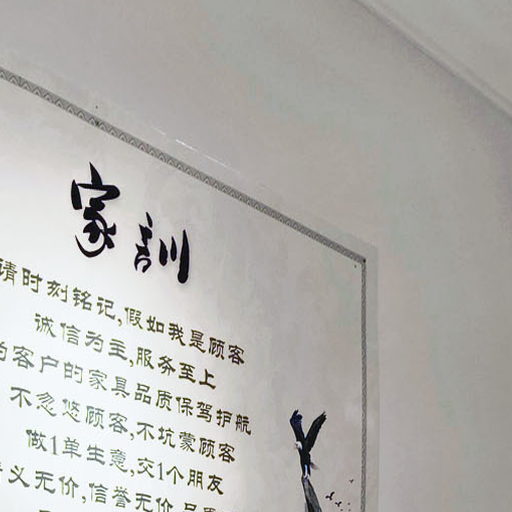 家訓
请时刻铭记,假如我是顾客
诚信为主,服务至上
为客户的家具品质保驾护航
不忽悠顾客,不坑蒙顾客
做1单生意,交1个朋友
义无价,信誉无价,品